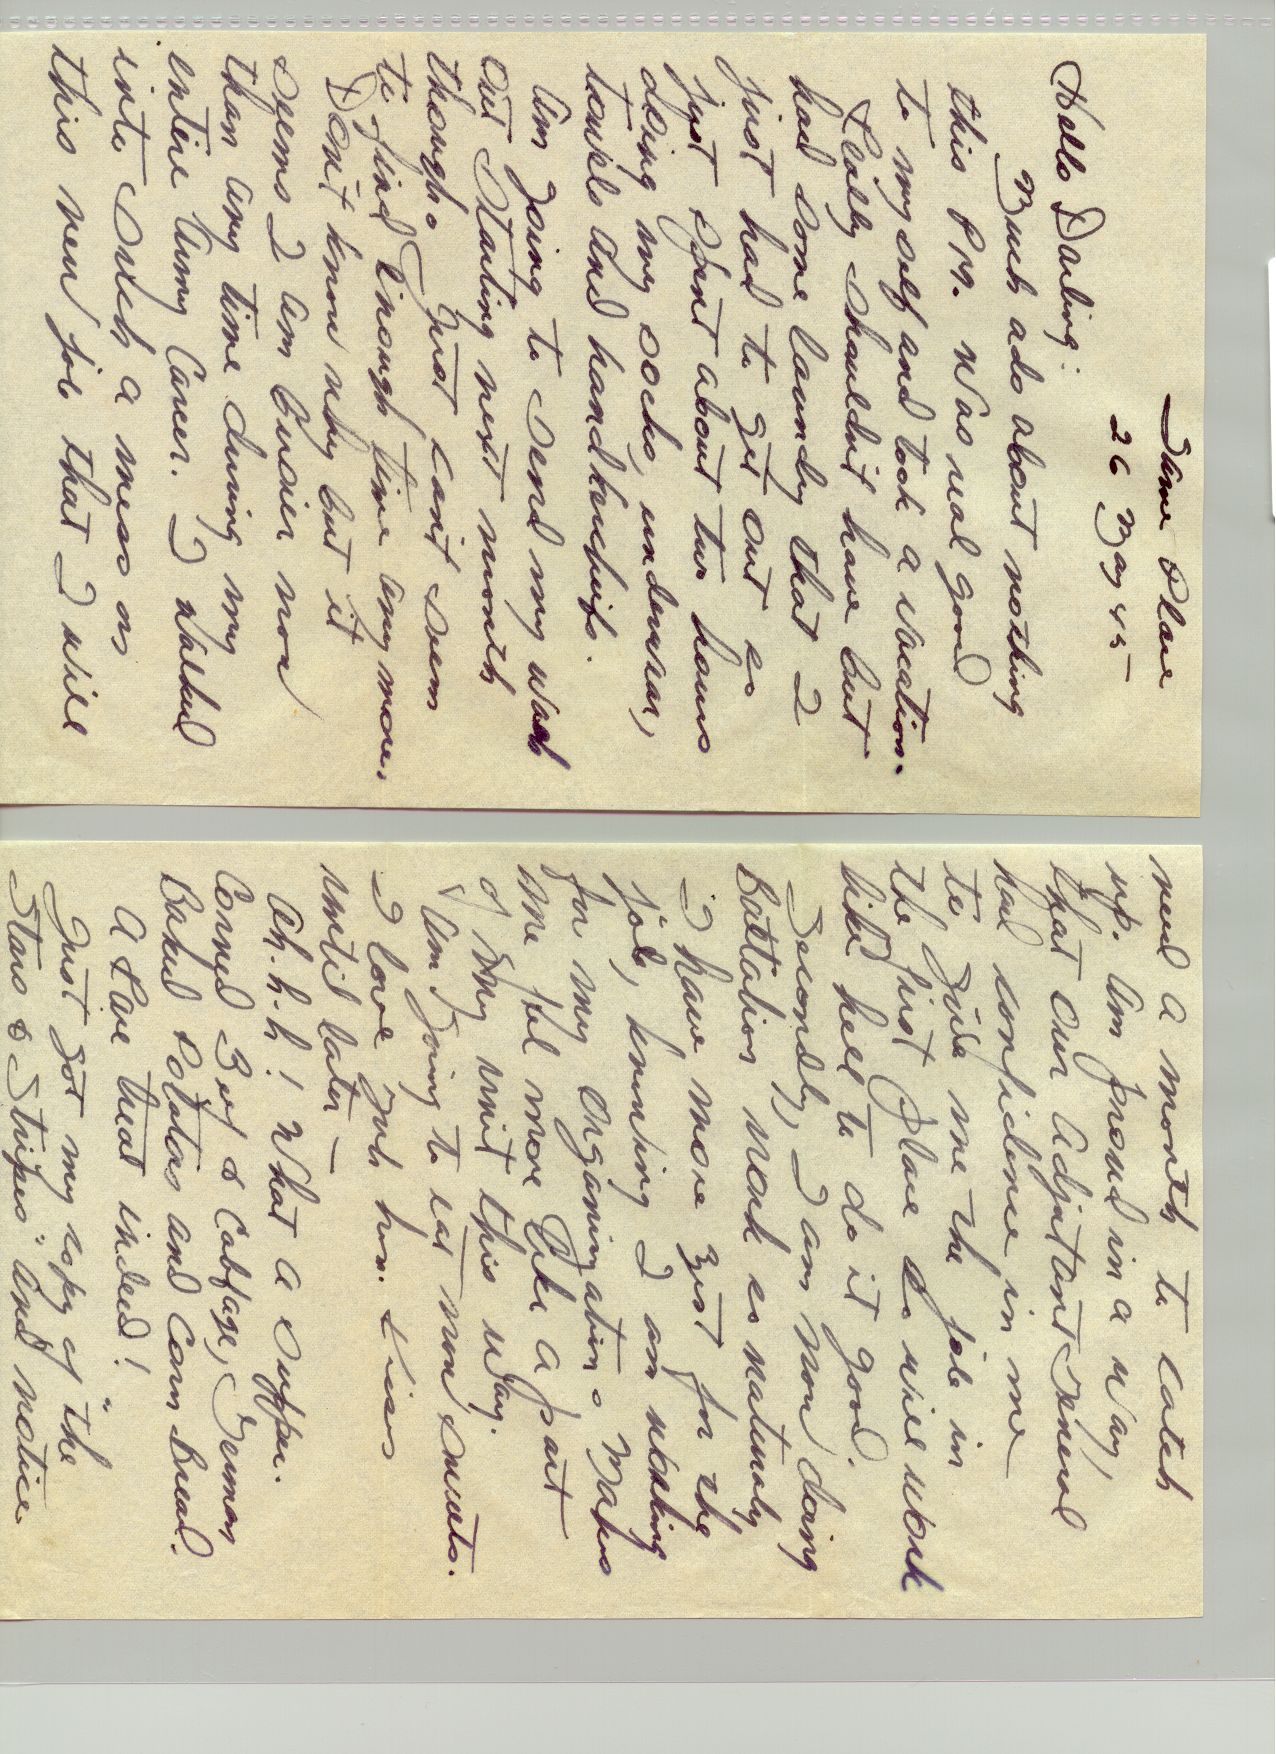 Same Place
26 May 45
Hello Darling:
Much ado about nothing
this P.M. Was real good
to myself and took a vacation.
Really shouldn't have but
had some laundry that I
just had to get out so
just spent about two hours
doing my socks, underwear,
towels and handkerchiefs.
Am going to send my wash
out starting next month
though. Just can't seem
to find enough time anymore.
Don't know why but it
seems I am busier now
than any time during my
entire Army Career. I walked
into such a mess on
this new job that I will
need a month to catch
up. Am proud in a way,
that our Adjutant General
had confidence in me
to give me the job in
the first place so will work
like hell to do it good.
Secondly, I am now doing
Battalion work so naturaly
I have more zest for the
job, knowing I am working
for my organization. Makes
me feel more like a part
of my unit this way.
Am going to eat now Sweets.
I love you hon. Kisses
until later —
Ah.h.h! What a supper.
Corned Beef & Cabbage, German
Baked Potatos and Corn Bread.
A Rare treat indeed!
Just got my copy of "the
Stars & Stripes" and notice